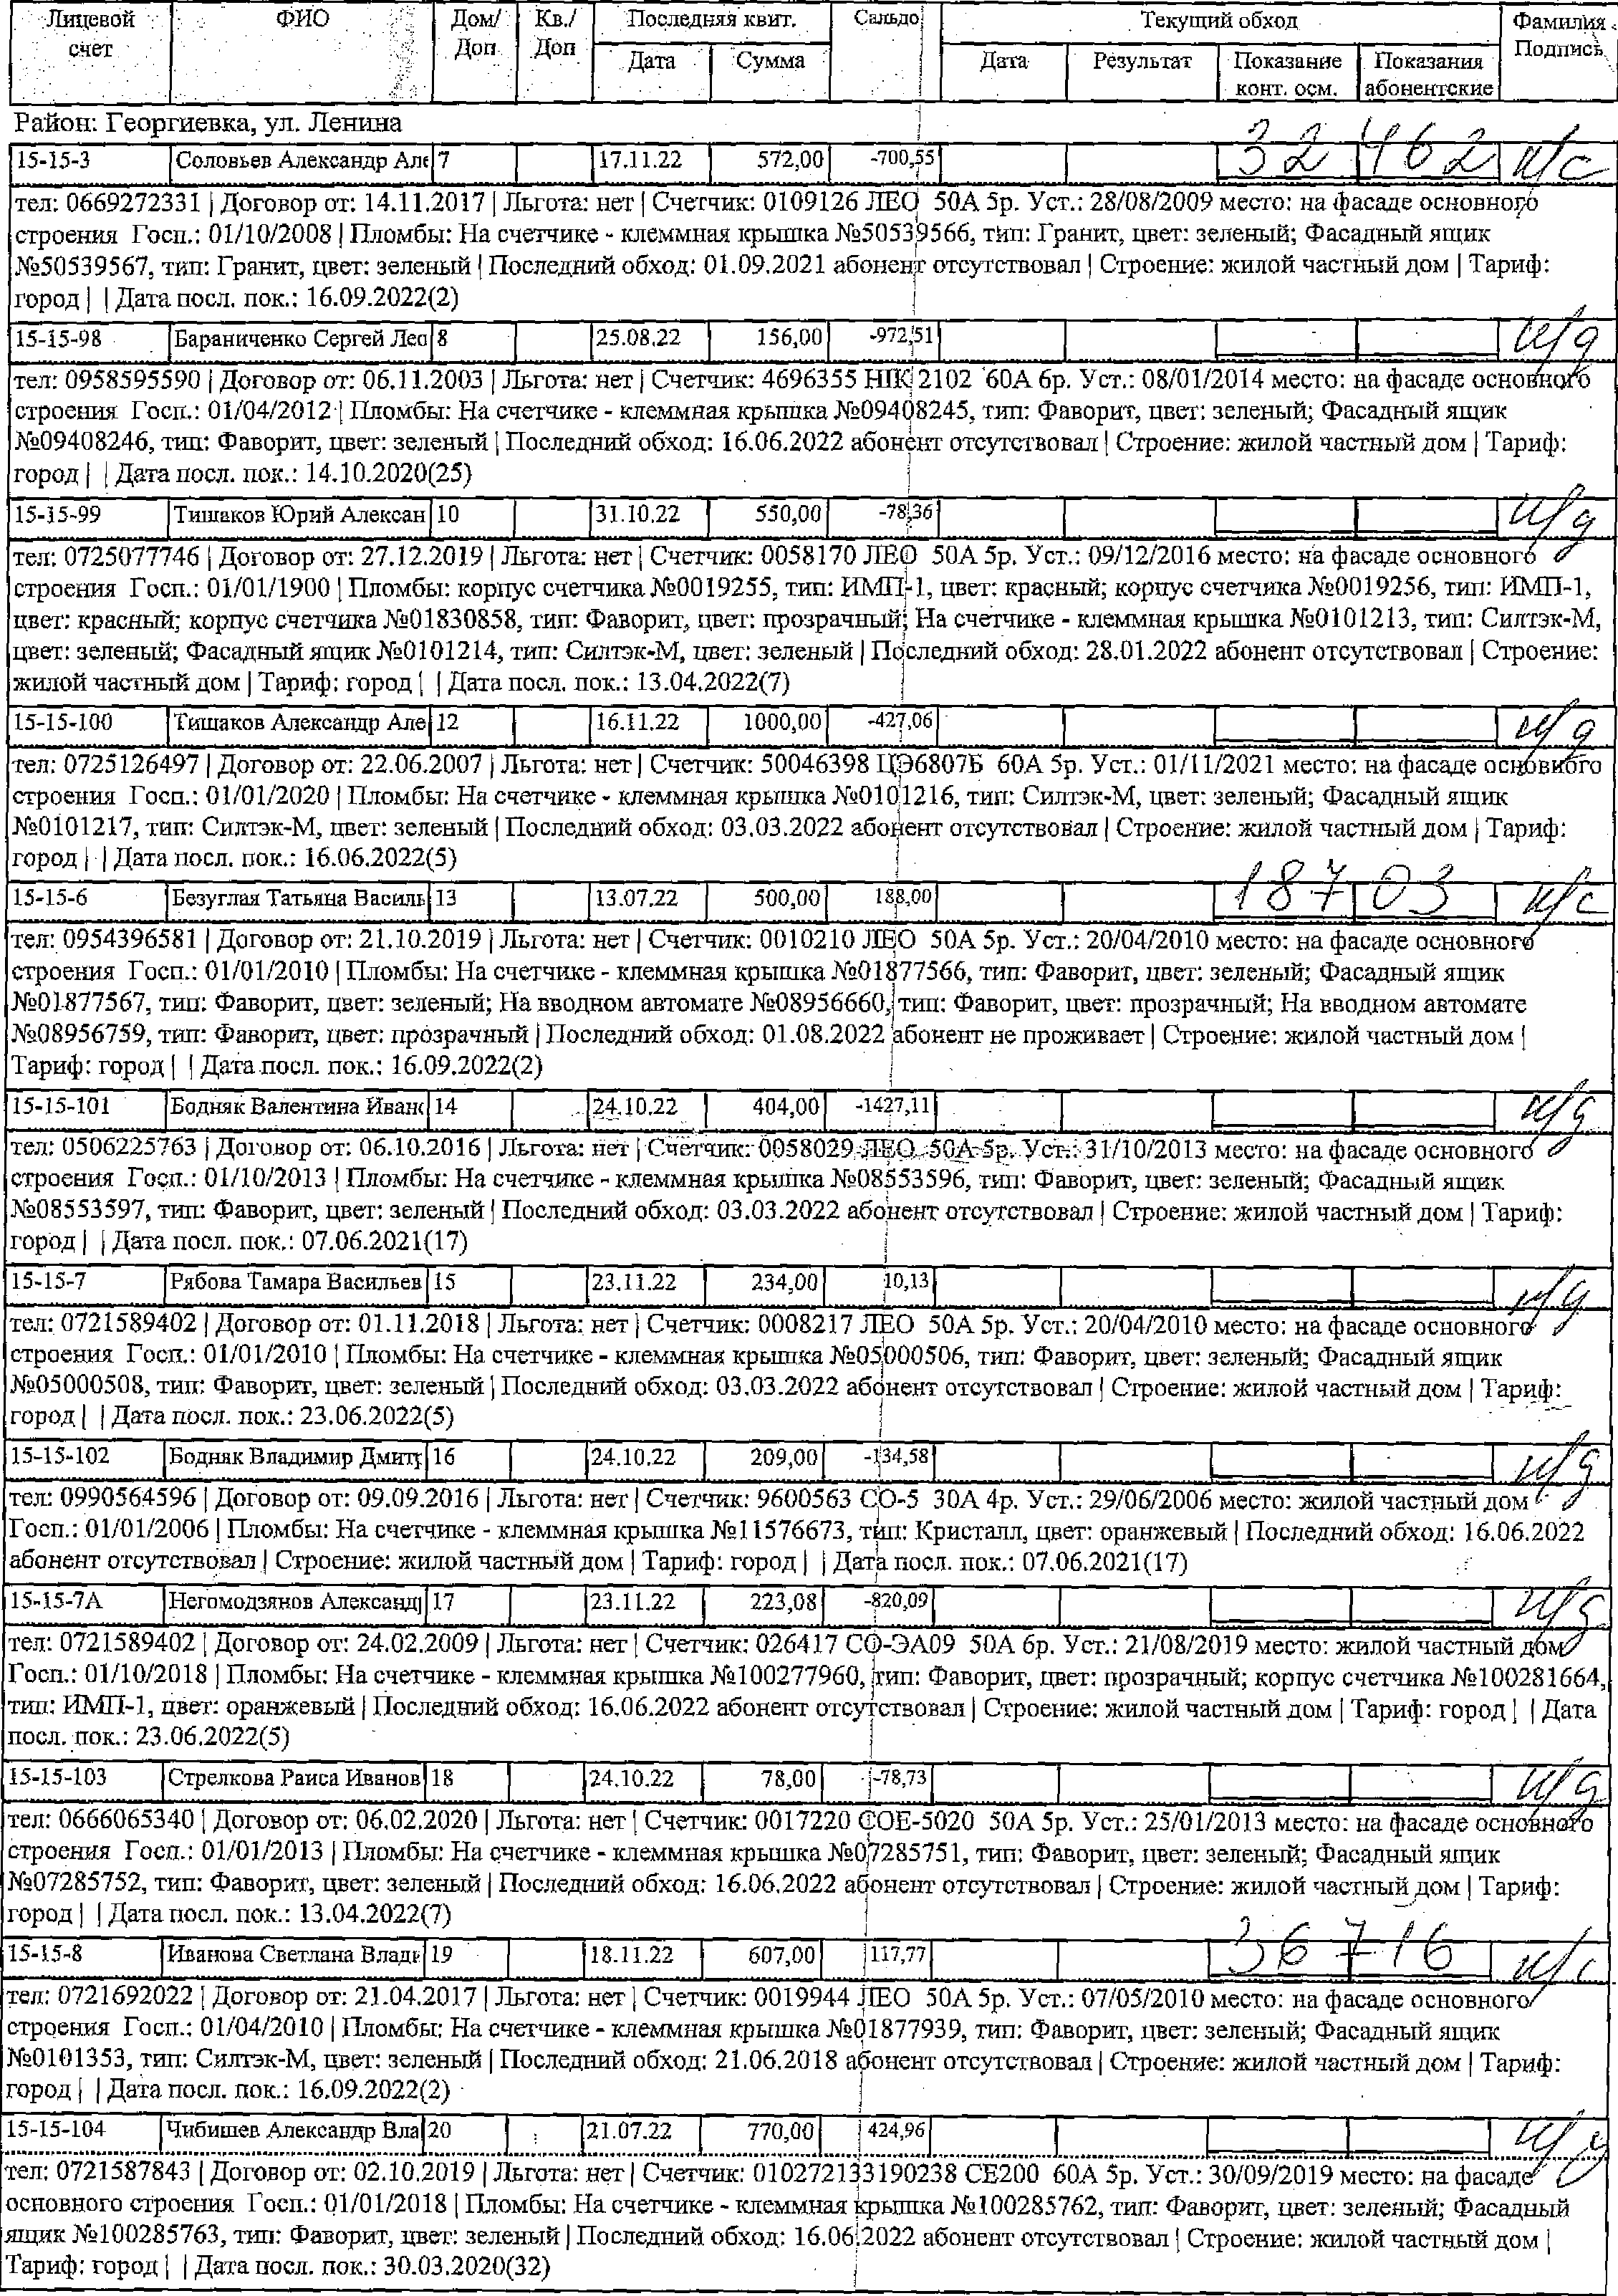 Лицевой счет ФИО Дом/Доп Кв./Доп Последняя квит. Сальдо Текущий обход Фамилия Подпись
Дата Сумма Дата Результат Показание конт. осм. Показания абонентские
Район: Георгиевка, ул. Ленина
15-15-3 Соловьев Александр Але 7 17.11.22 572,00 -700,55 32 462 н/с
тел: 0669272331 | Договор от: 14.11.2017 | Льгота: нет | Счетчик: 0109126 ЛЕО 50А 5р. Уст.: 28/08/2009 место: на фасаде основного
строения Госп.: 01/10/2008 | Пломбы: На счетчике - клеммная крышка №50539566, тип: Гранит, цвет: зеленый; Фасадный ящик
№50539567, тип: Гранит, цвет: зеленый | Последний обход: 01.09.2021 абонент отсутствовал | Строение: жилой частный дом | Тариф:
город | | Дата посл. пок.: 16.09.2022(2)
15-15-98 Бараниченко Сергей Лео 8 25.08.22 156,00 -972,51 н/д
тел: 0958595590 | Договор от: 06.11.2003 | Льгота: нет | Счетчик: 4696355 НІК 2102 60А 6р. Уст.: 08/01/2014 место: на фасаде основного
строения Госп.: 01/04/2012 | Пломбы: На счетчике - клеммная крышка №09408245, тип: Фаворит, цвет: зеленый; Фасадный ящик
№09408246, тип: Фаворит, цвет: зеленый | Последний обход: 16.06.2022 абонент отсутствовал | Строение: жилой частный дом | Тариф:
город | | Дата посл. пок.: 14.10.2020(25)
15-15-99 Тишаков Юрий Алексан 10 31.10.22 550,00 -78,36 н/д
тел: 0725077746 | Договор от: 27.12.2019 | Льгота: нет | Счетчик: 0058170 ЛЕО 50А 5р. Уст.: 09/12/2016 место: на фасаде основного
строения Госп.: 01/01/1900 | Пломбы: корпус счетчика №0019255, тип: ИМП-1, цвет: красный; корпус счетчика №0019256, тип: ИМП-1,
цвет: красный; корпус счетчика №01830858, тип: Фаворит, цвет: прозрачный; На счетчике - клеммная крышка №0101213, тип: Силтэк-М,
цвет: зеленый; Фасадный ящик №0101214, тип: Силтэк-М, цвет: зеленый | Последний обход: 28.01.2022 абонент отсутствовал | Строение:
жилой частный дом | Тариф: город | | Дата посл. пок.: 13.04.2022(7)
15-15-100 Тишаков Александр Але 12 16.11.22 1000,00 -427,06 н/д
тел: 0725126497 | Договор от: 22.06.2007 | Льгота: нет | Счетчик: 50046398 ЦЭ6807Б 60А 5р. Уст.: 01/11/2021 место: на фасаде основного
строения Госп.: 01/01/2020 | Пломбы: На счетчике - клеммная крышка №0101216, тип: Силтэк-М, цвет: зеленый; Фасадный ящик
№0101217, тип: Силтэк-М, цвет: зеленый | Последний обход: 03.03.2022 абонент отсутствовал | Строение: жилой частный дом | Тариф:
город | | Дата посл. пок.: 16.06.2022(5)
15-15-6 Безуглая Татьяна Василь 13 13.07.22 500,00 188,00 187 03 н/с
тел: 0954396581 | Договор от: 21.10.2019 | Льгота: нет | Счетчик: 0010210 ЛЕО 50А 5р. Уст.: 20/04/2010 место: на фасаде основного
строения Госп.: 01/01/2010 | Пломбы: На счетчике - клеммная крышка №01877566, тип: Фаворит, цвет: зеленый; Фасадный ящик
№01877567, тип: Фаворит, цвет: зеленый; На вводном автомате №08956660, тип: Фаворит, цвет: прозрачный; На вводном автомате
№08956759, тип: Фаворит, цвет: прозрачный | Последний обход: 01.08.2022 абонент не проживает | Строение: жилой частный дом |
Тариф: город | | Дата посл. пок.: 16.09.2022(2)
15-15-101 Бодняк Валентина Иванс 14 24.10.22 404,00 -1427,11 н/д
тел: 0506225763 | Договор от: 06.10.2016 | Льгота: нет | Счетчик: 0058029 ЛЕО 50А 5р. Уст.: 31/10/2013 место: на фасаде основного
строения Госп.: 01/10/2013 | Пломбы: На счетчике - клеммная крышка №08553596, тип: Фаворит, цвет: зеленый; Фасадный ящик
№08553597, тип: Фаворит, цвет: зеленый | Последний обход: 03.03.2022 абонент отсутствовал | Строение: жилой частный дом | Тариф:
город | | Дата посл. пок.: 07.06.2021(17)
15-15-7 Рябова Тамара Васильев 15 23.11.22 234,00 10,13 н/д
тел: 0721589402 | Договор от: 01.11.2018 | Льгота: нет | Счетчик: 0008217 ЛЕО 50А 5р. Уст.: 20/04/2010 место: на фасаде основного
строения Госп.: 01/01/2010 | Пломбы: На счетчике - клеммная крышка №05000506, тип: Фаворит, цвет: зеленый; Фасадный ящик
№05000508, тип: Фаворит, цвет: зеленый | Последний обход: 03.03.2022 абонент отсутствовал | Строение: жилой частный дом | Тариф:
город | | Дата посл. пок.: 23.06.2022(5)
15-15-102 Бодняк Владимир Дмитр 16 24.10.22 209,00 -134,58 н/д
тел: 0990564596 | Договор от: 09.09.2016 | Льгота: нет | Счетчик: 9600563 СО-5 30А 4р. Уст.: 29/06/2006 место: жилой частный дом
Госп.: 01/01/2006 | Пломбы: На счетчике - клеммная крышка №11576673, тип: Кристалл, цвет: оранжевый | Последний обход: 16.06.2022
абонент отсутствовал | Строение: жилой частный дом | Тариф: город | | Дата посл. пок.: 07.06.2021(17)
15-15-7А Негомодзянов Александр 17 23.11.22 223,08 -820,09 н/д
тел: 0721589402 | Договор от: 24.02.2009 | Льгота: нет | Счетчик: 026417 СО-ЭА09 50А 6р. Уст.: 21/08/2019 место: жилой частный дом
Госп.: 01/10/2018 | Пломбы: На счетчике - клеммная крышка №100277960, тип: Фаворит, цвет: прозрачный; корпус счетчика №100281664,
тип: ИМП-1, цвет: оранжевый | Последний обход: 16.06.2022 абонент отсутствовал | Строение: жилой частный дом | Тариф: город | | Дата
посл. пок.: 23.06.2022(5)
15-15-103 Стрелкова Раиса Иванов 18 24.10.22 78,00 -78,73 н/д
тел: 0666065340 | Договор от: 06.02.2020 | Льгота: нет | Счетчик: 0017220 СОЕ-5020 50А 5р. Уст.: 25/01/2013 место: на фасаде основного
строения Госп.: 01/01/2013 | Пломбы: На счетчике - клеммная крышка №07285751, тип: Фаворит, цвет: зеленый; Фасадный ящик
№07285752, тип: Фаворит, цвет: зеленый | Последний обход: 16.06.2022 абонент отсутствовал | Строение: жилой частный дом | Тариф:
город | | Дата посл. пок.: 13.04.2022(7)
15-15-8 Иванова Светлана Влади 19 18.11.22 607,00 117,77 36 716 н/с
тел: 0721692022 | Договор от: 21.04.2017 | Льгота: нет | Счетчик: 0019944 ЛЕО 50А 5р. Уст.: 07/05/2010 место: на фасаде основного
строения Госп.: 01/04/2010 | Пломбы: На счетчике - клеммная крышка №01877939, тип: Фаворит, цвет: зеленый; Фасадный ящик
№0101353, тип: Силтэк-М, цвет: зеленый | Последний обход: 21.06.2018 абонент отсутствовал | Строение: жилой частный дом | Тариф:
город | | Дата посл. пок.: 16.09.2022(2)
15-15-104 Чибишев Александр Вла 20 21.07.22 770,00 424,96 н/д
тел: 0721587843 | Договор от: 02.10.2019 | Льгота: нет | Счетчик: 010272133190238 СЕ200 60А 5р. Уст.: 30/09/2019 место: на фасаде
основного строения Госп.: 01/01/2018 | Пломбы: На счетчике - клеммная крышка №100285762, тип: Фаворит, цвет: зеленый; Фасадный
ящик №100285763, тип: Фаворит, цвет: зеленый | Последний обход: 16.06.2022 абонент отсутствовал | Строение: жилой частный дом |
Тариф: город | | Дата посл. пок.: 30.03.2020(32)